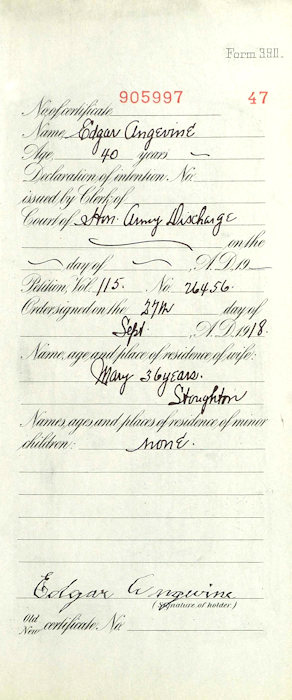 Form 380.
905997 47
No. of certificate
Name, Edgar Angevine
Age, 40 years
Declaration of intention: No.
issued by Clerk of
Court of Hon. Army Discharge
on the
day of , A.D. 19
Petition, Vol. 115. No. 26456.
Order signed on the 27th day of
Sept , A.D. 1918.
Name, age and place of residence of wife:
Mary 36 years.
Stoughton
Names, ages and places of residence of minor
children: none.
Edgar Angevine
(Signature of holder)
Old
New certificate No.